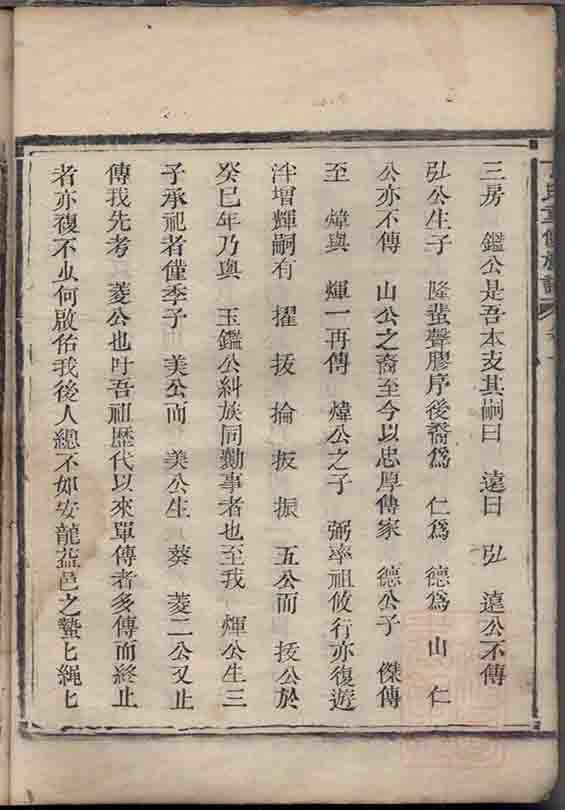 三房　鑑公是吾本支其嗣曰　遠曰　弘　遠公不傳
弘公生子　隆蜚聲膠序後裔爲　仁爲　德爲　山　仁
公亦不傳　山公之裔至今以忠厚傳家　德公子　傑傳
至　煒與　輝一再傳　煒公之子　弼率祖攸行亦復遊
泮增輝嗣有　擢　拔　掄　扳　振　五公而　拔公於
癸巳年乃與　玉鑑公糾族同勷事者也至我　輝公生三
子承祀者僅季子　美公而　美公生　葵　菱二公又止
傳我先考　菱公也吁吾祖歷代以來單傳者多傳而終止
者亦複不乆何啟佑我後人總不如安龍盜邑之蟄匕繩匕
氏重修族譜